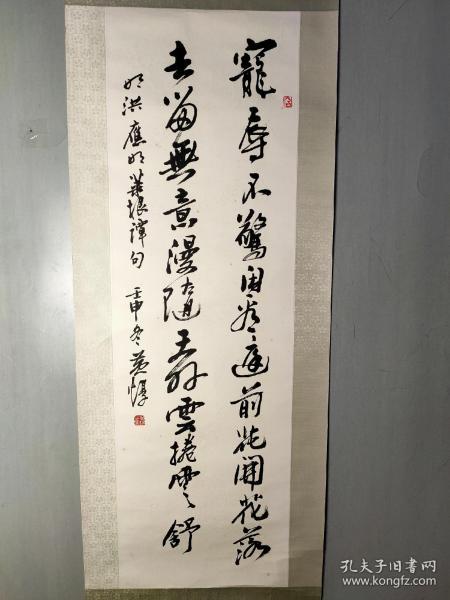 寵辱不驚閒看庭前花開花落
去留無意漫隨天外雲捲雲舒
明洪應明菜根譚句 壬申冬黃惇
孔夫子旧书网
www.kongfz.com